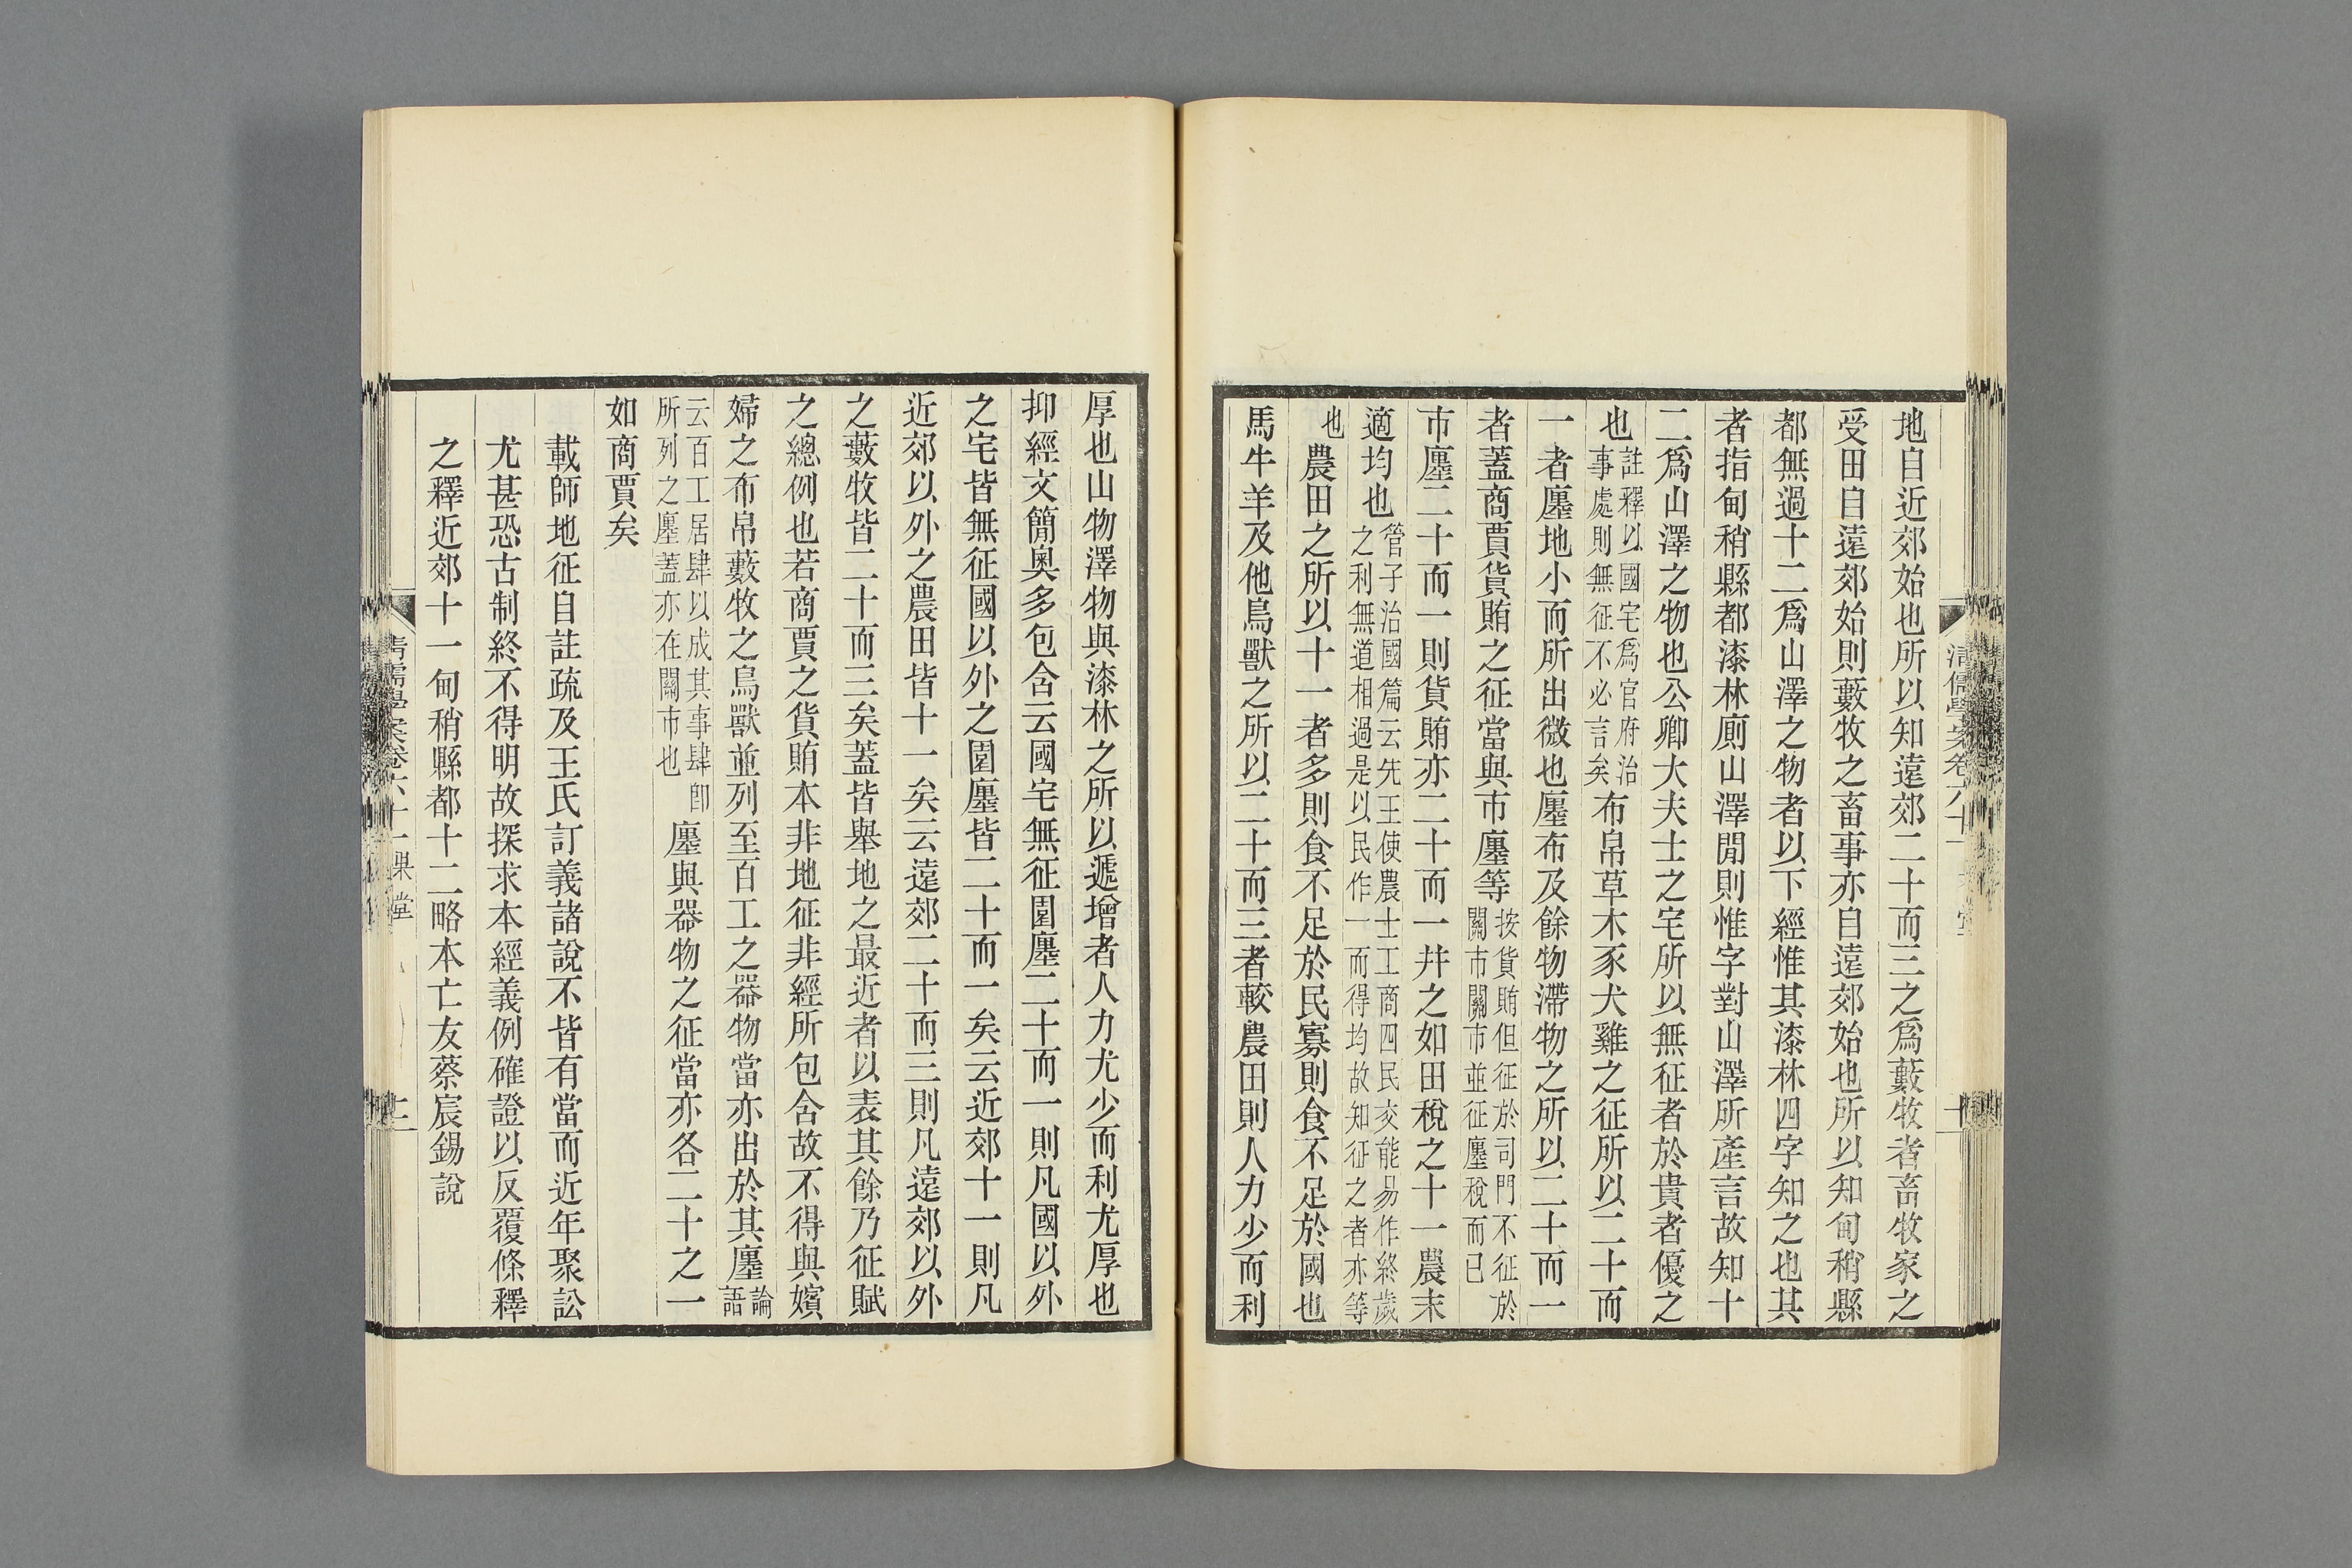 地自近郊始也所以知遠郊二十而三之爲藪牧者畜牧家之
受田自遠郊始則藪牧之畜事亦自遠郊始也所以知甸稍縣
都無過十二爲山澤之物者以下經惟其漆林四字知之也其
者指甸稍縣都漆林廁山澤閒則惟字對山澤所產言故知十
二爲山澤之物也公卿大夫士之宅所以無征者於貴者優之
也註釋以國宅爲官府治事處則無征不必言矣布帛草木豕犬雞之征所以二十而
一者廛地小而所出微也廛布及餘物滯物之所以二十而一
者蓋商賈貨賄之征當與市廛等按貨賄但征於司門不征於關市關市並征廛稅而已
市廛二十而一則貨賄亦二十而一幷之如田稅之十一農末
適均也管子治國篇云先王使農士工商四民交能易作終歲之利無道相過是以民作一而得均故知征之者亦等
也農田之所以十一者多則食不足於民寡則食不足於國也
馬牛羊及他鳥獸之所以二十而三者較農田則人力少而利
厚也山物澤物與漆林之所以遞增者人力尤少而利尤厚也
抑經文簡奧多包含云國宅無征園廛二十而一則凡國以外
之宅皆無征國以外之園廛皆二十而一矣云近郊十一則凡
近郊以外之農田皆十一矣云遠郊二十而三則凡遠郊以外
之藪牧皆二十而三矣蓋皆舉地之最近者以表其餘乃征賦
之總例也若商賈之貨賄本非地征非經所包含故不得與嬪
婦之布帛藪牧之鳥獸並列至百工之器物當亦出於其廛論語
云百工居肆以成其事肆卽所列之廛蓋亦在關市也廛與器物之征當亦各二十之一
如商賈矣
載師地征自註疏及王氏訂義諸說不皆有當而近年聚訟
尤甚恐古制終不得明故探求本經義例確證以反覆條釋
之釋近郊十一甸稍縣都十二略本亡友蔡宸錫說
清儒學案卷六十一果堂
十二